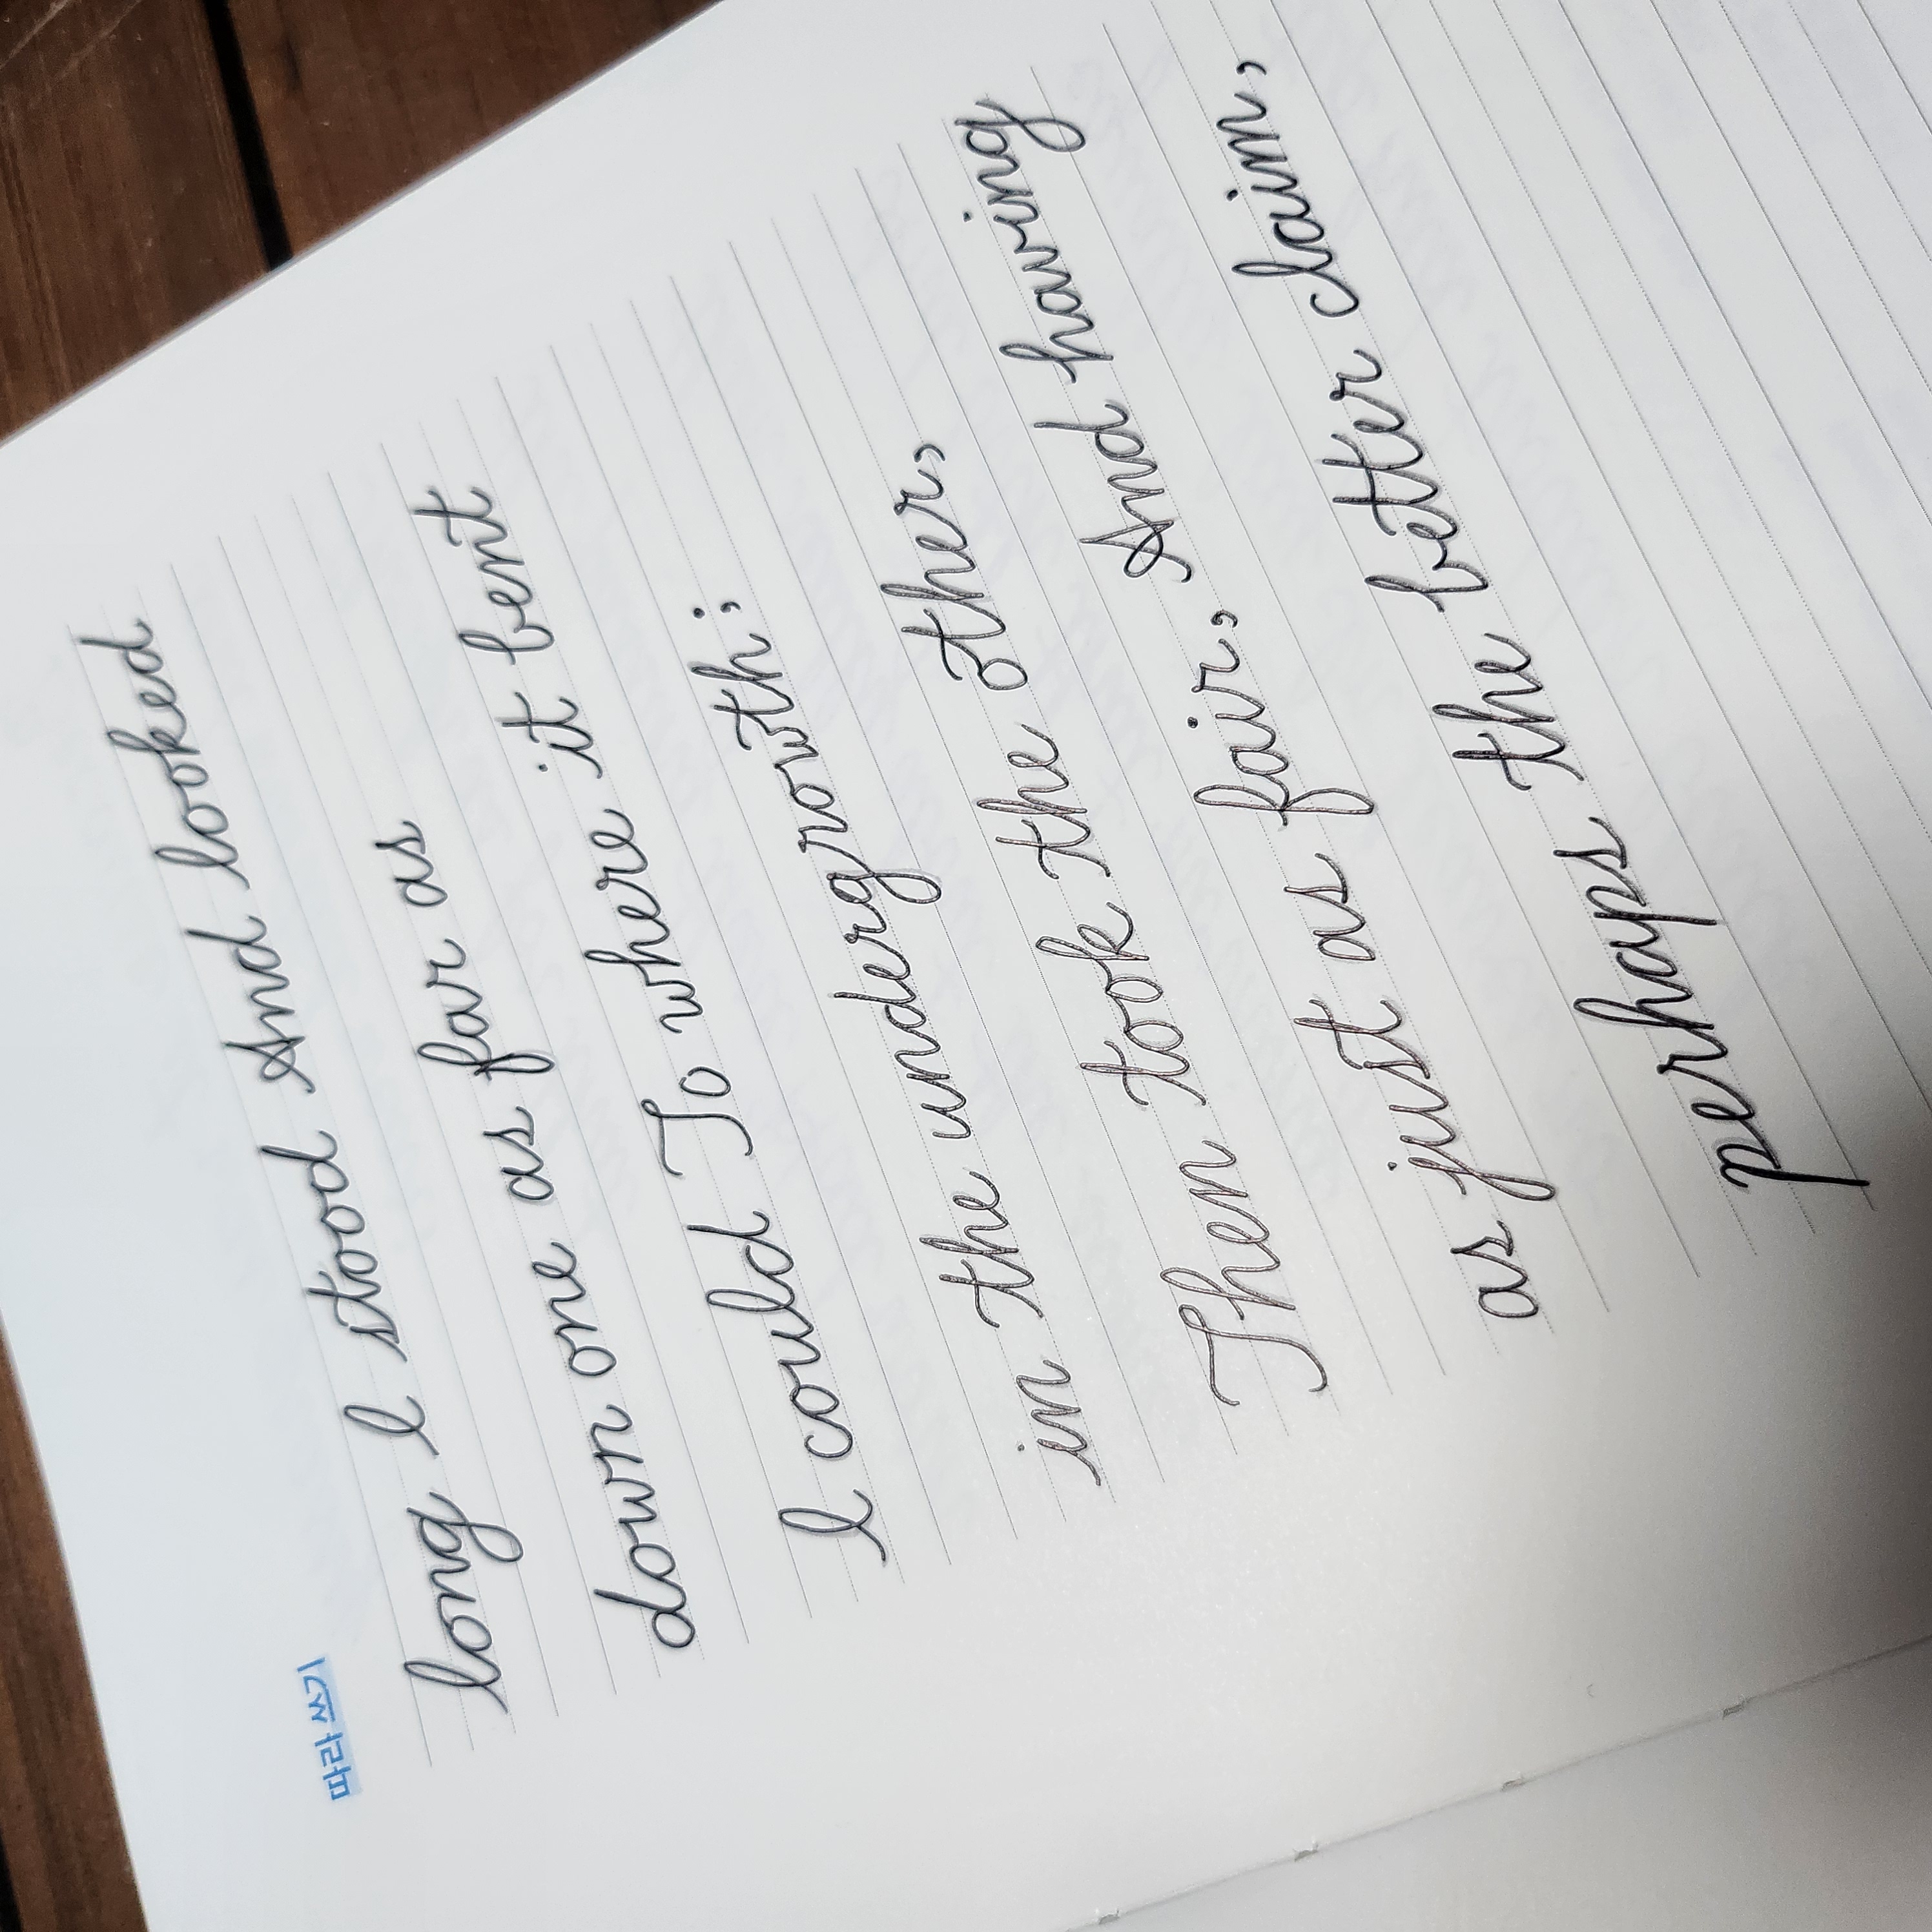 따라 쓰기
long I stood And looked
down one as far as
I could To where it bent
in the undergrowth;
Then took the other,
as just as fair, And having
perhaps the better claim,